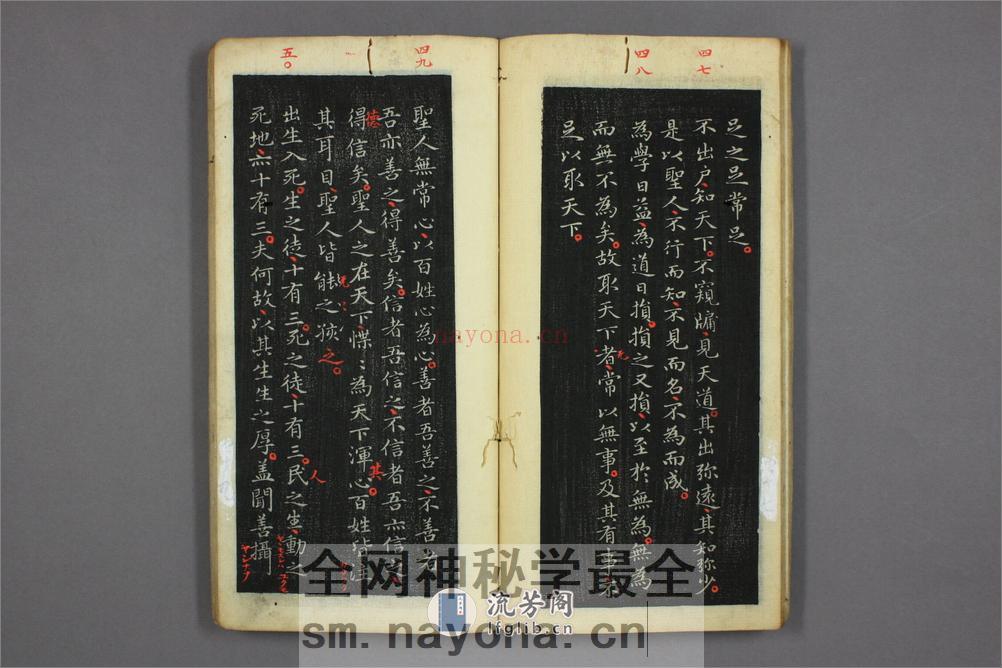 四七
四八
足之足常足。
不出戶、知天下。不窺牖、見天道。其出弥遠、其知弥少。
是以聖人、不行而知、不見而名、不為而成。
為學日益、為道日損。損之又損、以至於無為。無為
而無不為矣。故取天下者、常以無事。及其有事
足以取天下。
四九
五〇
聖人無常心、以百姓心為心。善者吾善之、不善者
吾亦善之、得善矣。信者吾信之、不信者吾亦信之
德
得信矣。聖人之在天下、惵〻為天下渾心百姓皆注
其
其耳目、聖人皆
之。
出生入死。生之徒、十有三。死之徒、十有三。民之生、動之
人
死地、亦十有三。夫何故、以其生生之厚。盖聞善攝
nayona.cn
全网神秘学最全
流芳阁
lfglib.cn
sm.nayona.cn